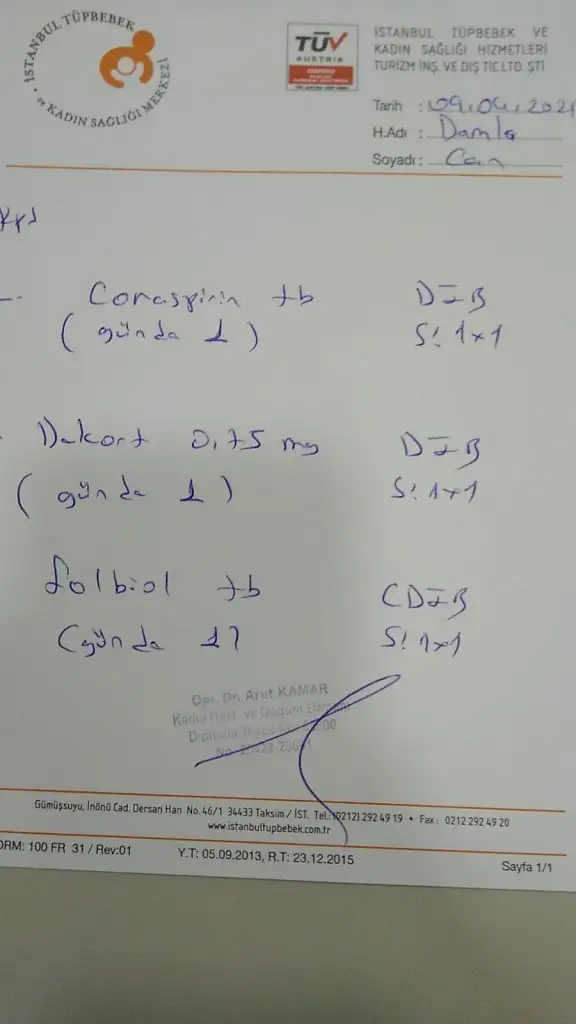 İSTANBUL TÜPBEBEK
ve KADIN SAĞLIĞI MERKEZİ
TÜV
AUSTRIA
İSTANBUL TÜPBEBEK VE
KADIN SAĞLIĞI HİZMETLERİ
TURİZM İNŞ. VE DIŞ TİC.LTD. ŞTİ.
Tarih : 09.04.2021
H.Adı : Damla
Soyadı : Can
Coraspirin tb DIB
(günda 1) S! 1x1
Dekort 0,75 mg DIB
(günda 1) S! 1x1
folbiol tb CDIB
(günda 1) S! 1x1
Opr. Dr. Arut KAMAR
Kadın Hast. ve Doğum Uzmanı
Gümüşsuyu, İnönü Cad. Dersan Han No. 46/1 34433 Taksim / İST. Tel: (0212) 292 49 19 • Fax : 0212 292 49 20
www.istanbultupbebek.com.tr
ORM: 100 FR 31 / Rev:01 Y.T: 05.09.2013, R.T: 23.12.2015 Sayfa 1/1